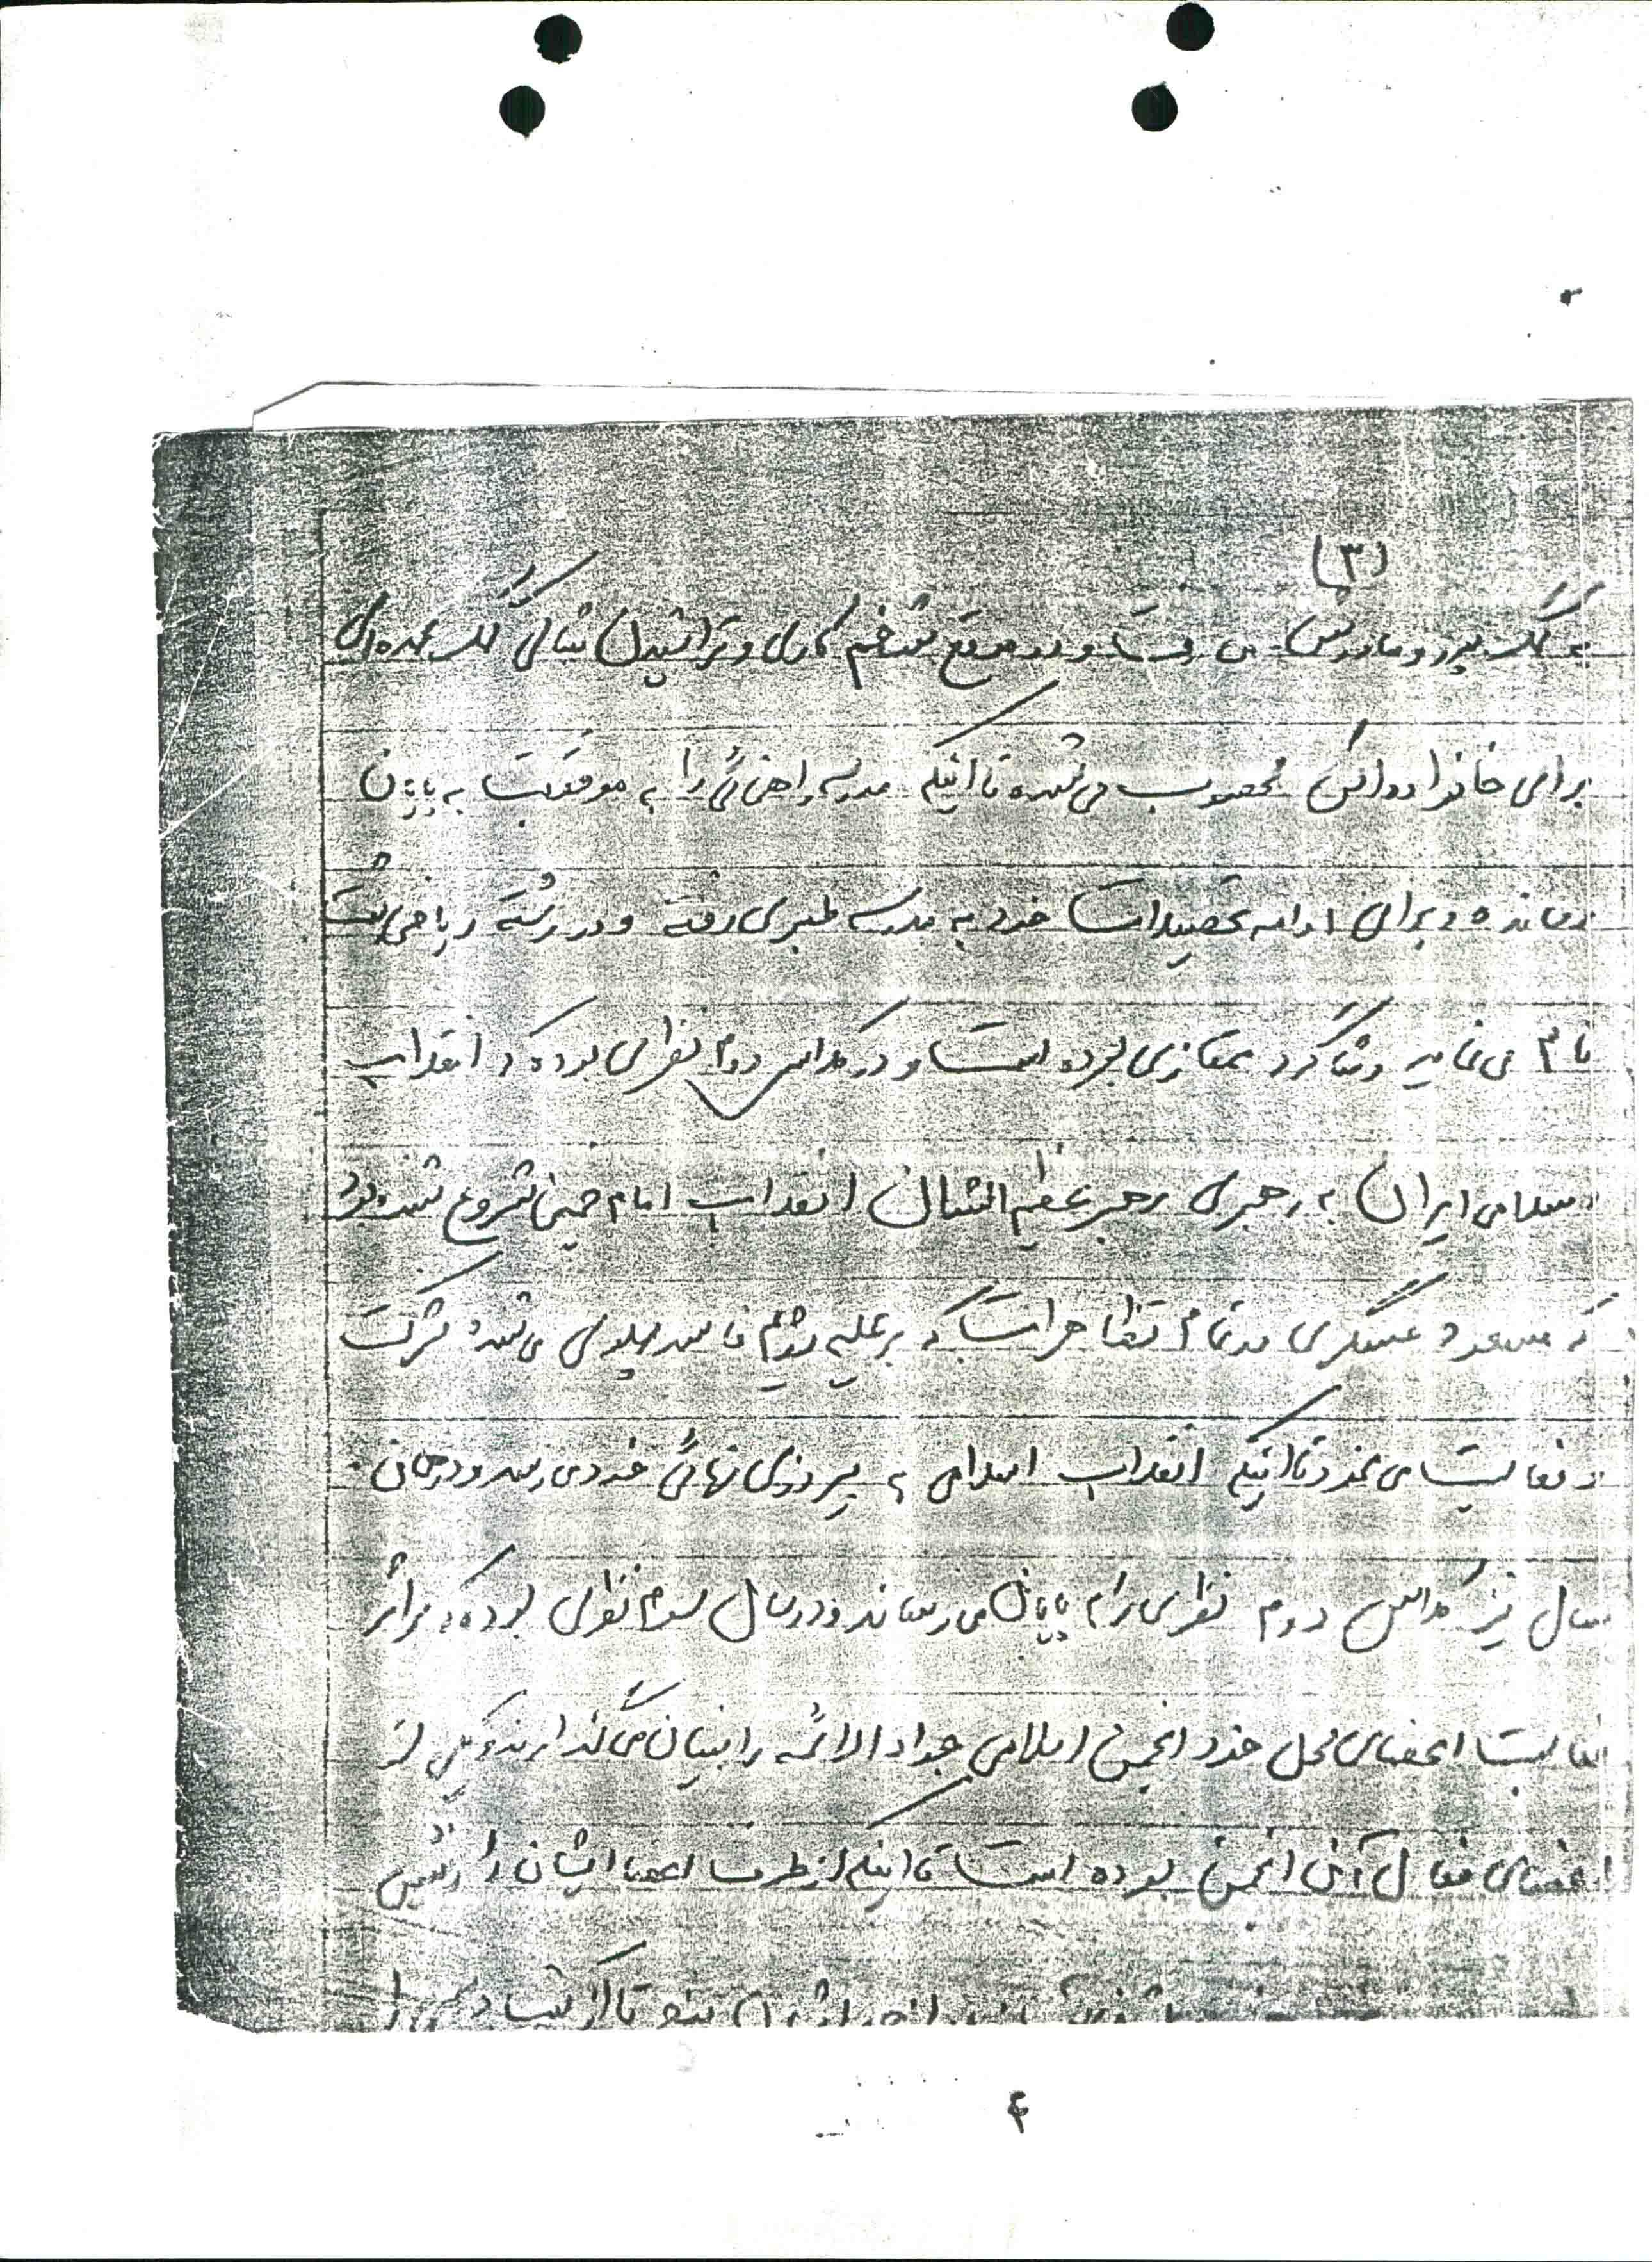 (۳)
کمک پدر و مادرش می رفت و در موقع شخم کاری و تراشیدن شالی کمک عمده‌ای
برای خانواده‌اش محصوب می شده تا اینکه مدرسه راهنمائی را به موفقیت به پایان
رسانده و برای ادامه تحصیلات خود به مدرسه طبری رفته و در رشته ریاضی ثبت
نام می نماید و شاگرد ممتازی بوده است و در کلاس دوم نظری بوده که انقلاب
اسلامی ایران به رهبری رهبر عظیم الشان انقلاب امام خمینی شروع شده بود
که مسعود عسگری در تمام تظاهرات که بر علیه رژیم فاسد پهلوی می شد شرکت
و فعالیت می نمود تا اینکه انقلاب اسلامی به پیروزی نهائی خود می رسد و در همان
سال نیز کلاس دوم نظری را به پایان می رساند و در سال سوم نظری بوده که بر اثر
فعالیت اعضای محل خود انجمن اسلامی جواد الائمه را بنیان می گذارند و یکی از
اعضای فعال آن انجمن بوده است تا اینکه از طرف اعضا ایشان را رئیس